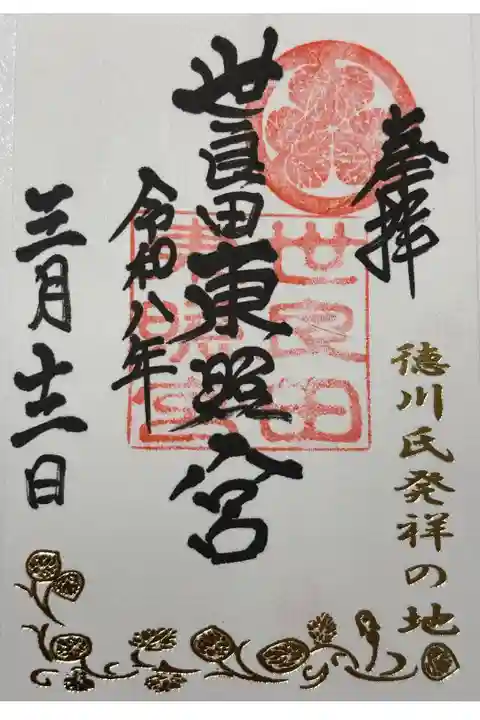 奉拝
徳川氏発祥の地
世良田東照宮
世良田
東照宮
令和八年
三月十三日